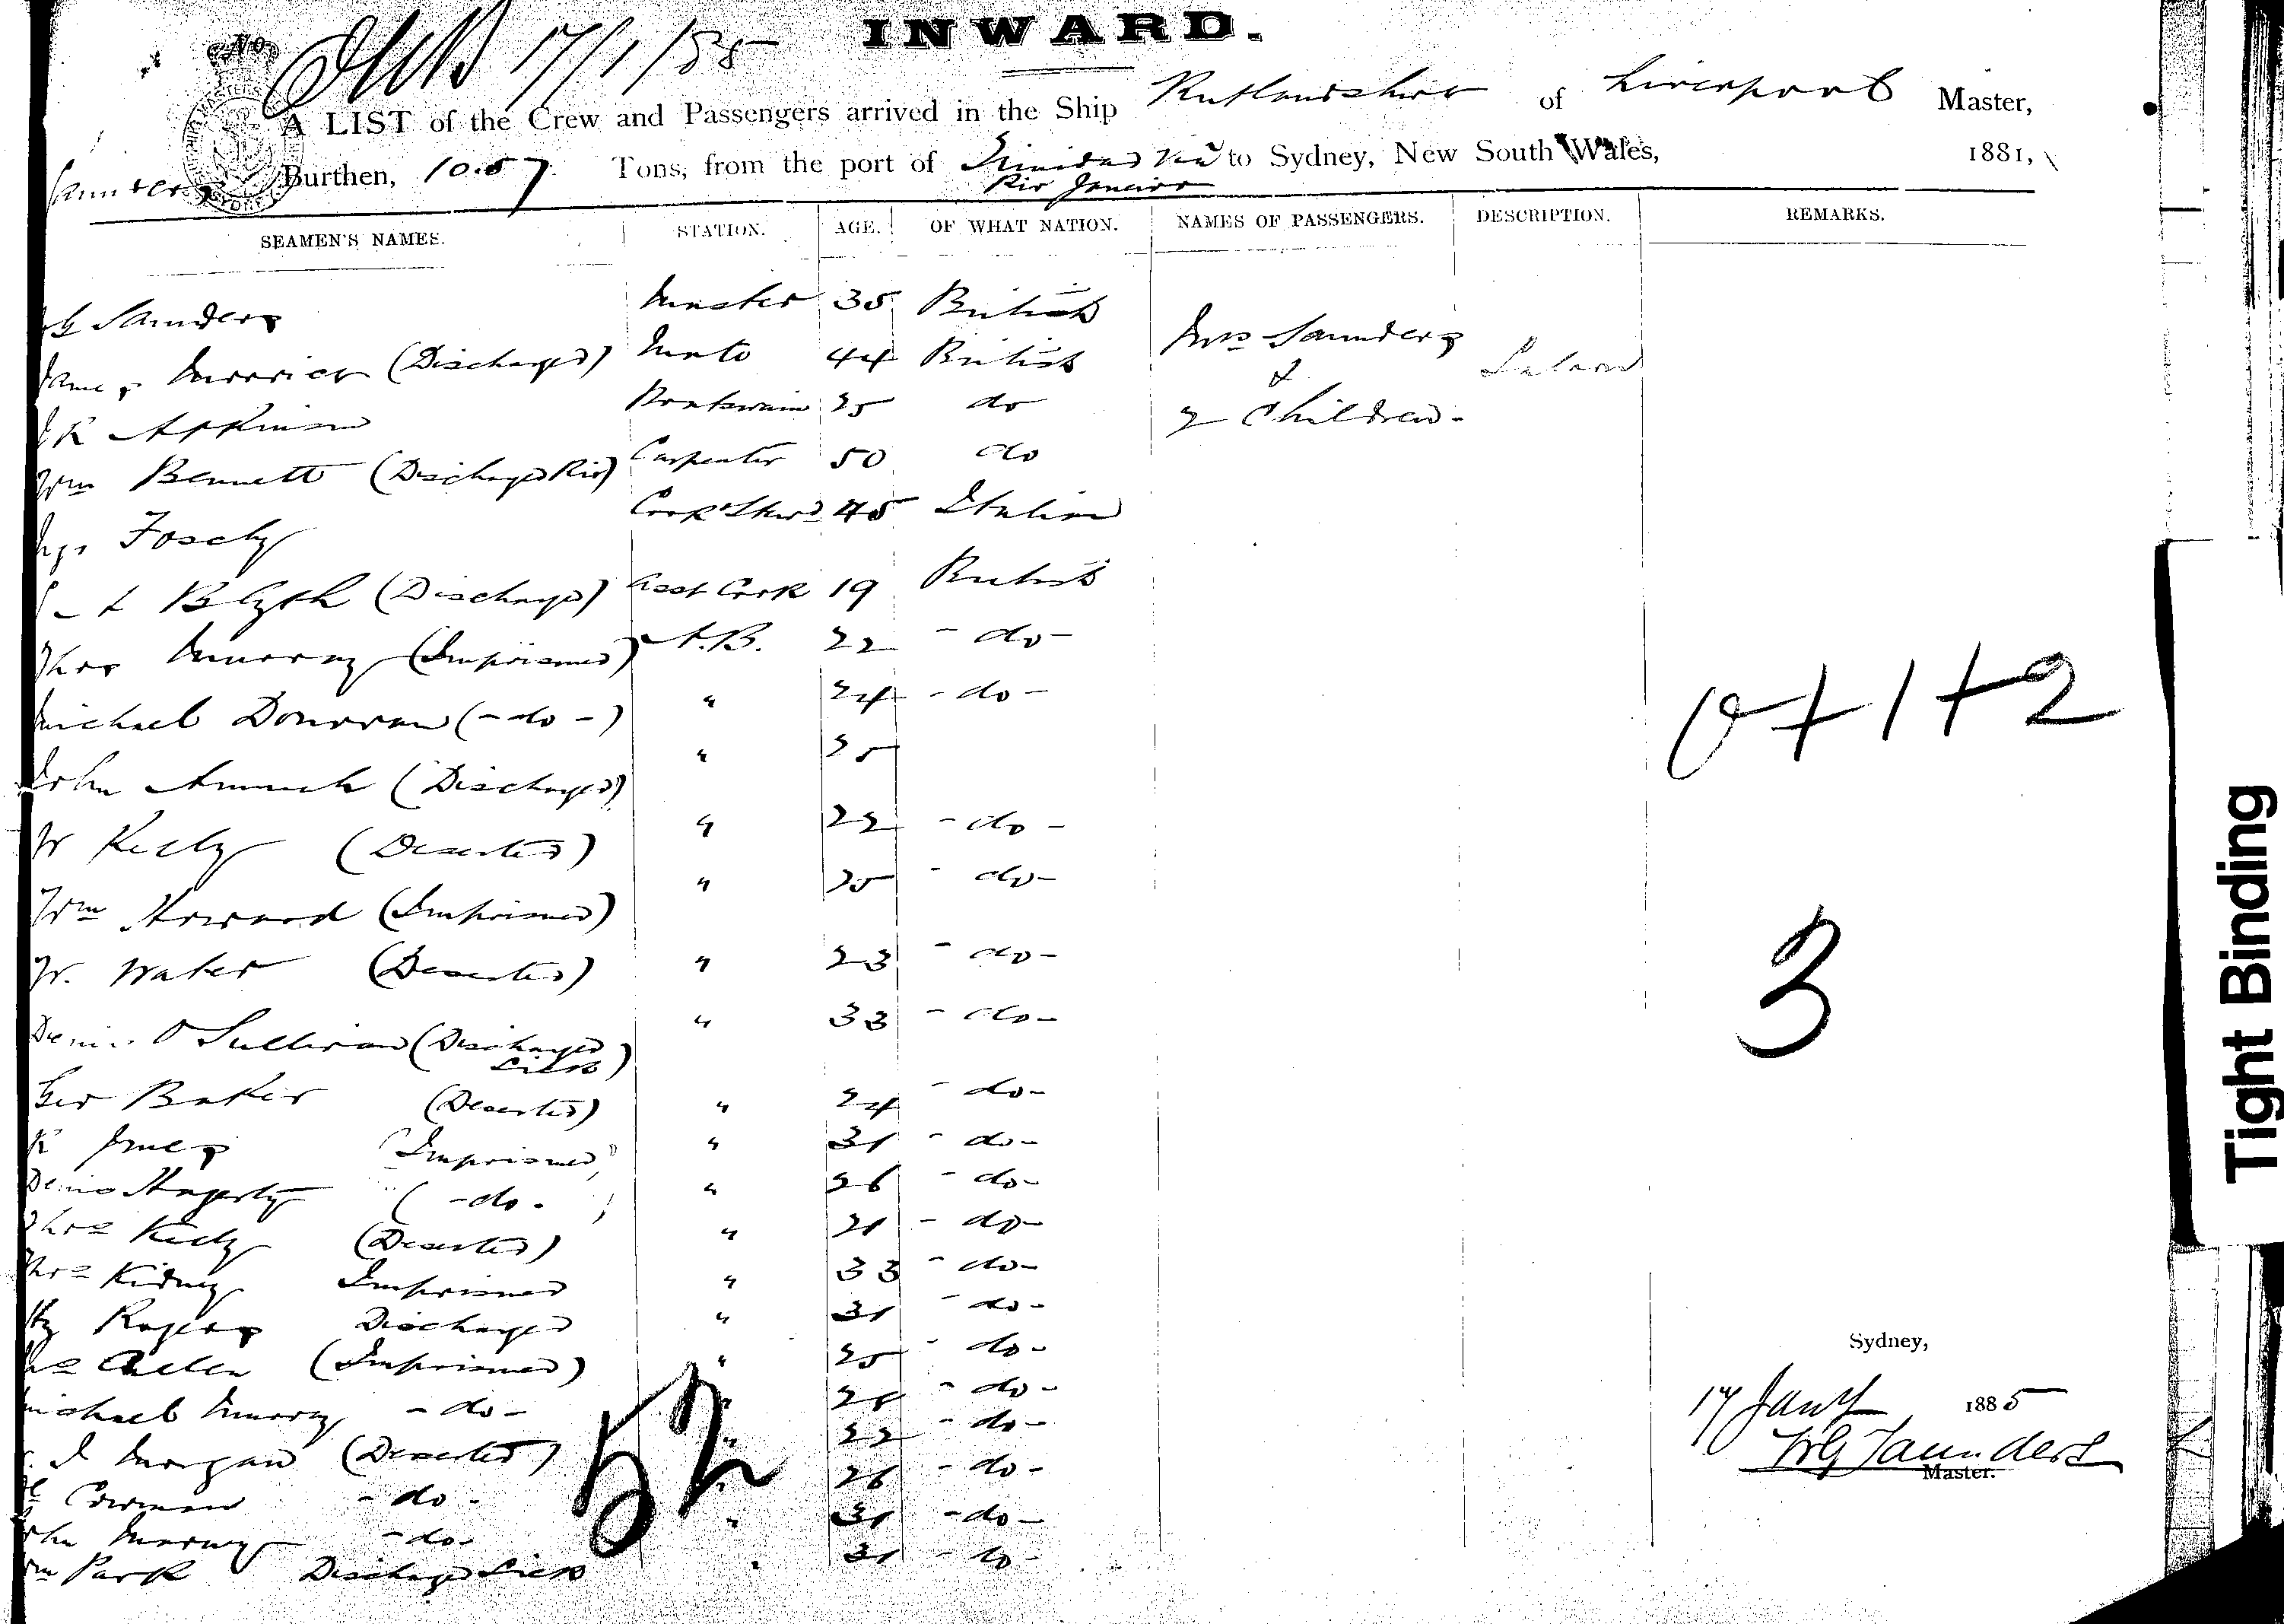 INWARD.
17/1/85
A LIST of the Crew and Passengers arrived in the Ship Rutlandshire of Liverpool Master,
Saunders Burthen, 10.57 Tons, from the port of Trinidad via to Sydney, New South Wales, 1881,
Rio Janeiro
SEAMEN'S NAMES. STATION. AGE. OF WHAT NATION. NAMES OF PASSENGERS. DESCRIPTION. REMARKS.
G Saunders Master 35 British Mrs Saunders
James (Discharged) Mate 44 British & Saloon
J R Atkinson Boatswain 25 do 2 Children.
Wm Bennett (Discharged Rio) Carpenter 50 do
Foschy Cook & Stwd 45 Italian
Blyth (Discharged) Asst Cook 19 British
Thos Murray (Imprisoned) A.B. 22 - do -
Michael Donovan (- do -) " 24 - do -
John (Discharged) " 25
W Kelly (Deserted) " 22 - do -
Wm Howard (Imprisoned) " 25 - do -
W. Water (Deserted) " 23 - do -
Denis O Sullivan (Discharged " 33 - do -
Sick)
Geo Baker (Deserted) " 24 - do -
R Jones (Imprisoned) " 31 - do -
Denis Hagerty ( - do - ) " 26 - do -
Thos Kielly (Deserted) " 21 - do -
Thos Kidney Imprisoned " 33 - do -
Hy Rogers Discharged " 31 - do -
Allen (Imprisoned) " 25 - do -
Michael Murray - do - " 28 - do -
J Morgan (Deserted) " 22 - do -
Cowman - do - " 26 - do -
John Murray - do - " 31 - do -
Wm Park Discharged Sick " 31 - do -
52
0+1+2
3
Sydney,
17 Jany 1885
WG Saunders
Master.
Tight Binding